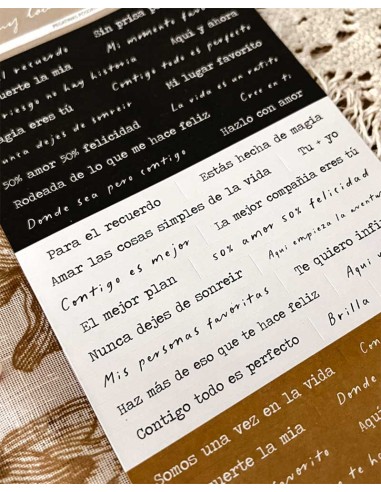 Sin prisa
el recuerdo
Mi momento favorito
Aquí y ahora
suerte la mía
riesgo no hay historia
Contigo todo es perfecto
magia eres tú
Mi lugar favorito
nunca dejes de sonreír
La vida es un ratito
50% amor 50% felicidad
Cree en ti
Rodeada de lo que me hace feliz
Hazlo con amor
Donde sea pero contigo
Estás hecha de magia
Para el recuerdo
Tu + yo
Amar las cosas simples de la vida
La mejor compañía eres tú
Contigo es mejor
50% amor 50% felicidad
El mejor plan
Aquí empieza la aventu
Nunca dejes de sonreír
Te quiero infi
Mis personas favoritas
Aquí
Haz más de eso que te hace feliz
Brilla
Contigo todo es perfecto
Somos una vez en la vida
Con
suerte la mía
Donde
favorito
Aquí
te ha